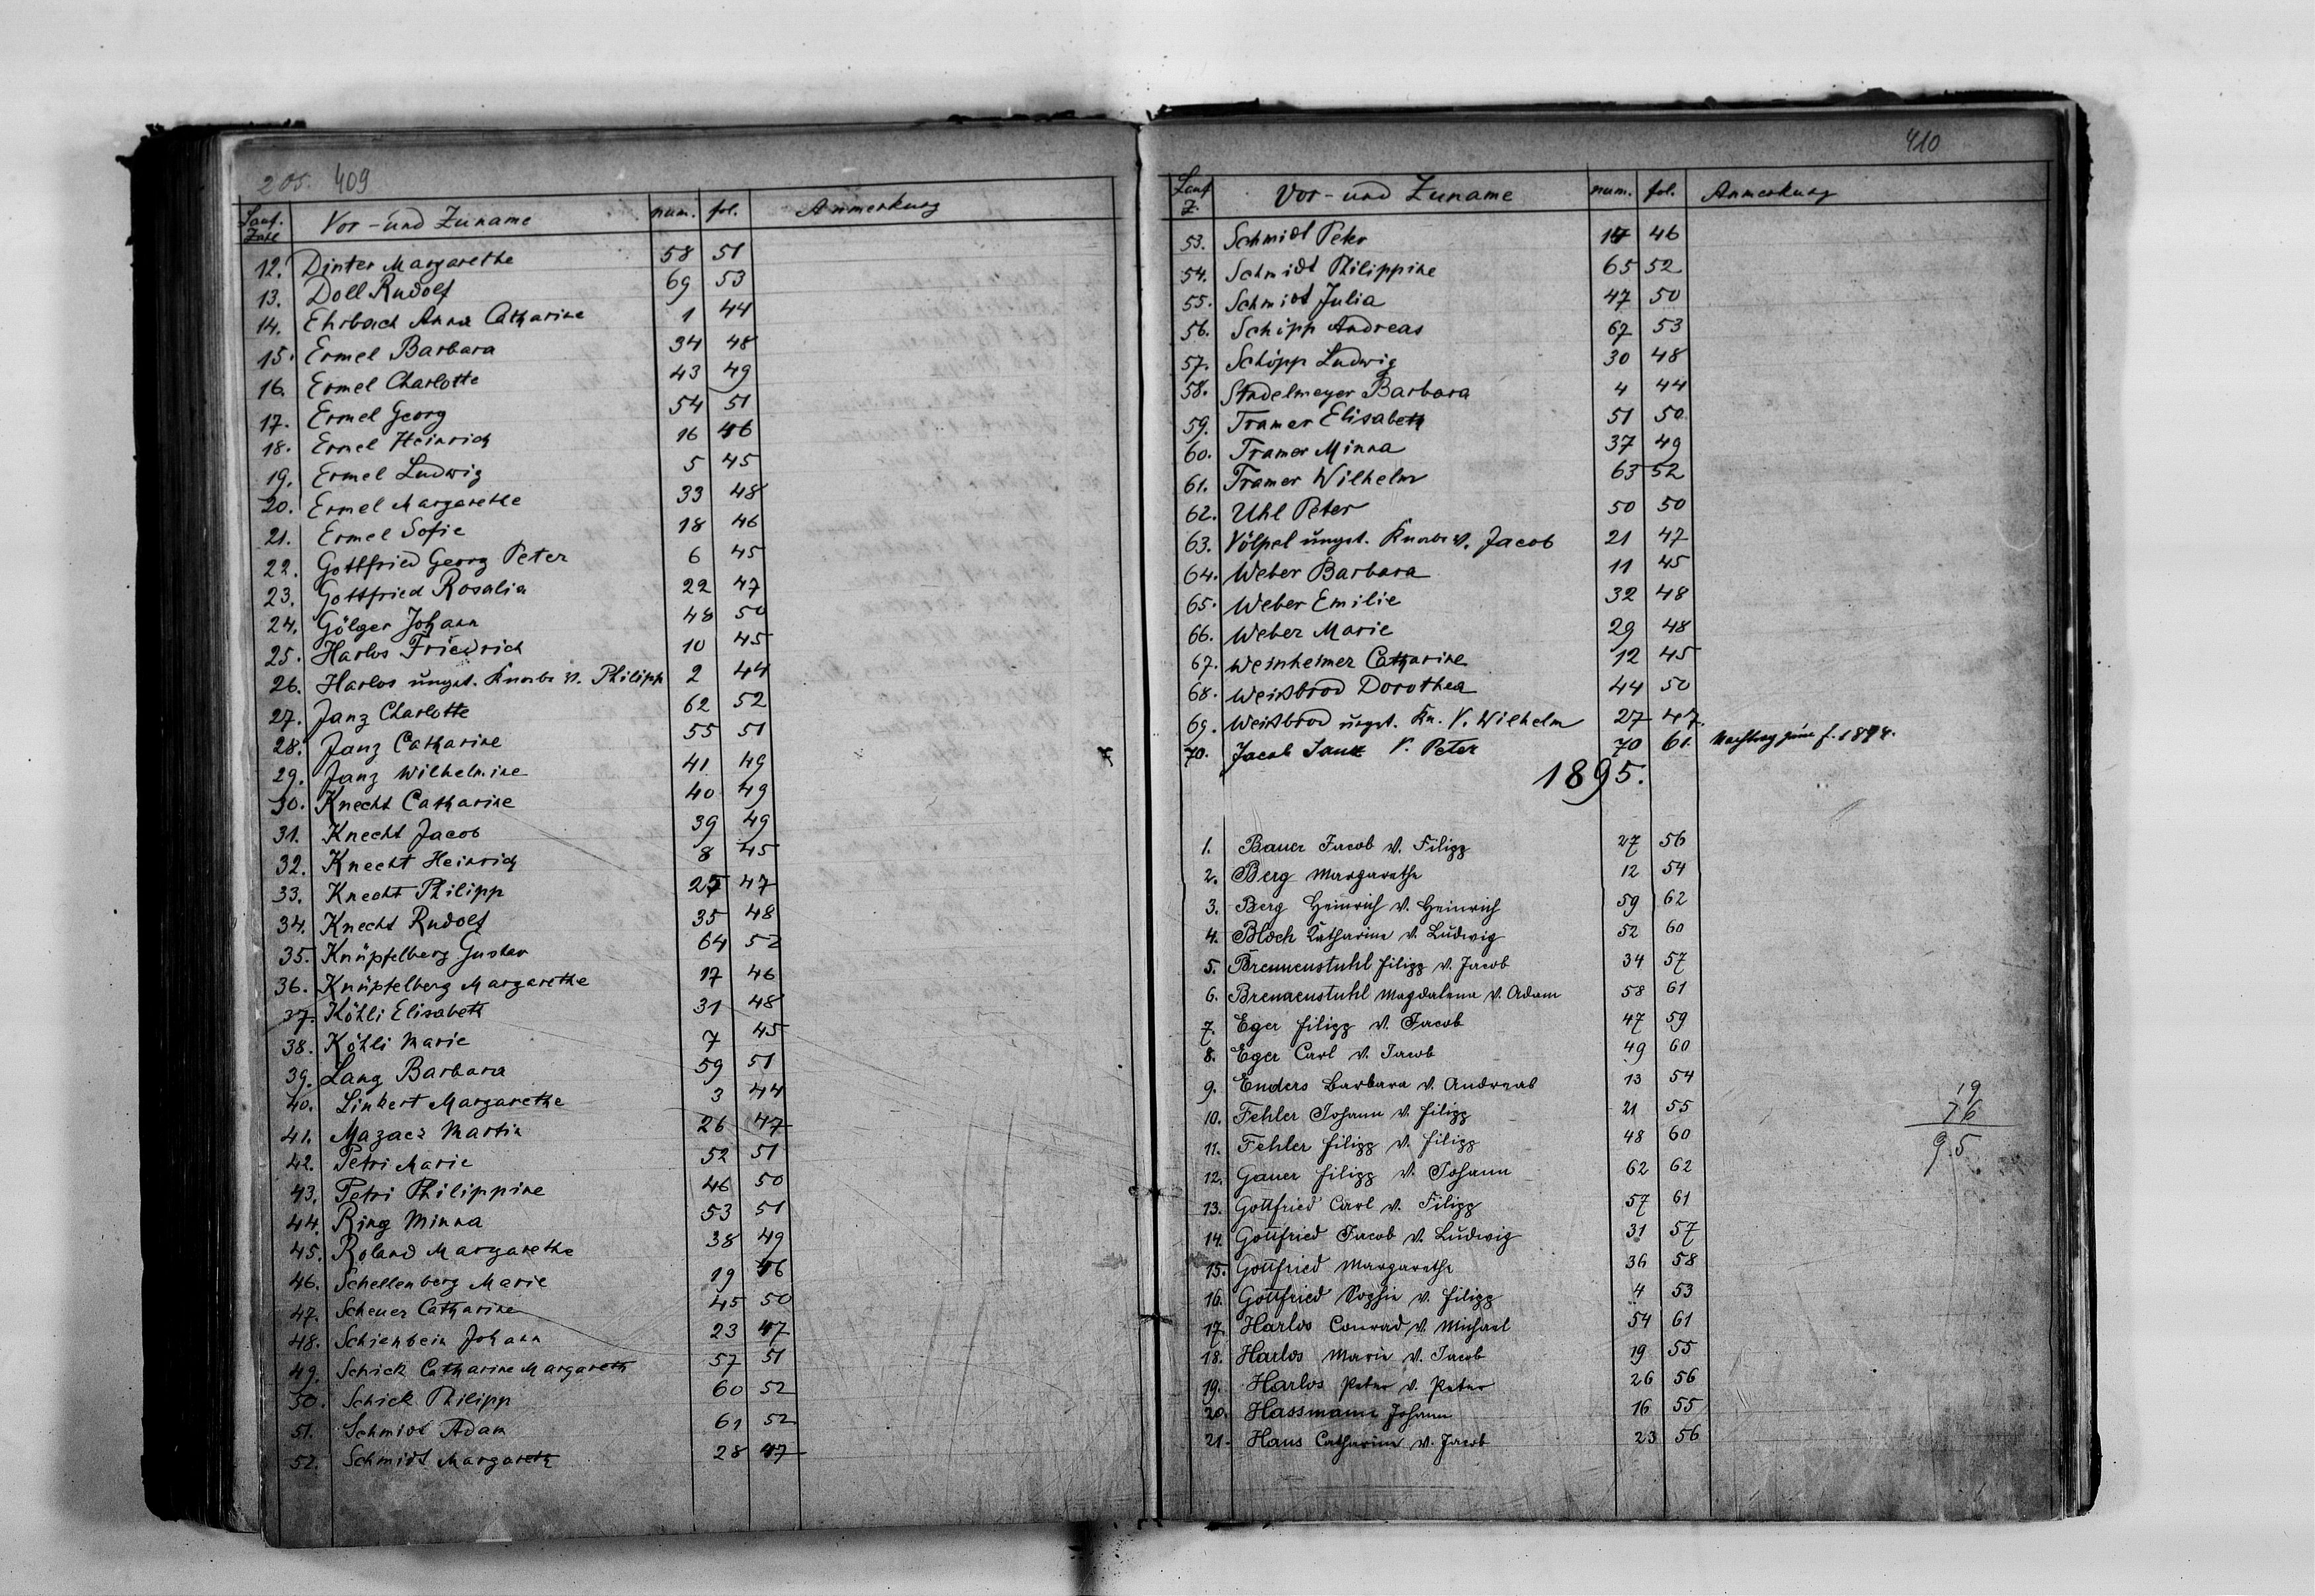 205. 409
Lauf. Zahl Vor- und Zuname num. fol. Anmerkung
12. Dinter Margarethe 58 51
13. Doll Rudolf 69 53
14. Ehrbach Anna Catharine 1 44
15. Ermel Barbara 34 48
16. Ermel Charlotte 43 49
17. Ermel Georg 54 51
18. Ermel Heinrich 16 46
19. Ermel Ludwig 5 45
20. Ermel Margarethe 33 48
21. Ermel Sofie 18 46
22. Gottfried Georg Peter 6 45
23. Gottfried Rosalia 22 47
24. Gölger Johann 48 50
25. Harlos Friedrich 10 45
26. Harlos ungt. Knabe v. Philipp 2 44
27. Janz Charlotte 62 52
28. Janz Catharine 55 51
29. Janz Wilhelmine 41 49
30. Knecht Catharine 40 49
31. Knecht Jacob 39 49
32. Knecht Heinrich 8 45
33. Knecht Philipp 25 47
34. Knecht Rudolf 35 48
35. Knüpfelberg Gustav 64 52
36. Knüpfelberg Margarethe 17 46
37. Köhli Elisabeth 31 48
38. Köhli Marie 7 45
39. Lang Barbara 59 51
40. Linkert Margarethe 3 44
41. Mazacs Martin 26 47
42. Petri Marie 52 51
43. Petri Philippine 46 50
44. Ring Minna 53 51
45. Roland Margarethe 38 49
46. Schellenberg Marie 19 46
47. Scheuer Catharine 45 50
48. Schienbein Johann 23 47
49. Schick Catharine Margareth 57 51
50. Schick Philipp 60 52
51. Schmidt Adam 61 52
52. Schmidt Margareth 28 47
410
Lauf Z. Vor- und Zuname num. fol. Anmerkung
53. Schmidt Peter 46
54. Schmidt Philippine 65 52
55. Schmidt Julia 47 50
56. Schipp Andreas 67 53
57. Schöpp Ludwig 30 48
58. Stadelmeyer Barbara 4 44
59. Tramer Elisabeth 51 50
60. Tramer Minna 37 49
61. Tramer Wilhelm 63 52
62. Uhl Peter 50 50
63. Völpel ungt. Knabe v. Jacob 21 47
64. Weber Barbara 11 45
65. Weber Emilie 32 48
66. Weber Marie 29 48
67. Weinheimer Catharine 12 45
68. Weißbrod Dorothea 44 50
69. Weißbrod ungt. Kn. V. Wilhelm 27 47.
70. Jacob V. Peter 70 61.
1895.
1. Bauer Jacob v. Filipp 27 56
2. Berg Margarethe 12 54
3. Berg Heinrich v. Heinrich 59 62
4. Bloch Katharina v. Ludwig 52 60
5. Brennenstuhl Filipp v. Jacob 34 57
6. Brennenstuhl Magdalena v. Adam 58 61
7. Eger Filipp v. Jacob 47 59
8. Eger Carl v. Jacob 49 60
9. Enders Barbara v. Andreas 13 54
10. Fehler Johann v. Filipp 21 55
11. Fehler Filipp v. Filipp 48 60
12. Gauer Filipp v. Johann 62 62
13. Gottfried Carl v. Filipp 57 61
14. Gottfried Jacob v. Ludwig 31 57
15. Gottfried Margarethe 36 58
16. Gottfried Sophie v. Filipp 4 53
17. Harlos Conrad v. Michael 54 61
18. Harlos Marie v. Jacob 19 55
19. Harlos Peter v. Peter 26 56
20. Hassmann Johann 16 55
21. Haus Catharina v. Jacob 23 56
19
76
95